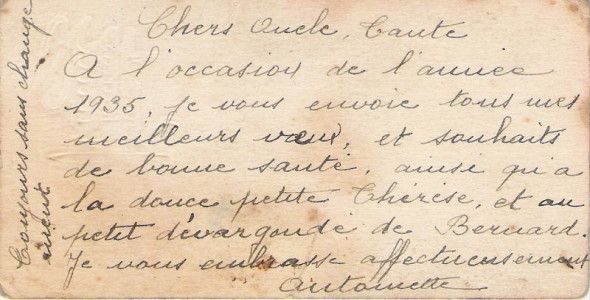 Chers Oncle, Tante
A l'occasion de l'année
1935, je vous envoie tous mes
meilleurs vœux, et souhaits
de bonne santé, ainsi qu'a
la douce petite Thérèse, et au
petit dévargondé de Bernard.
Je vous embrasse affectueusement
Antoinette
Toujours sans change
ment